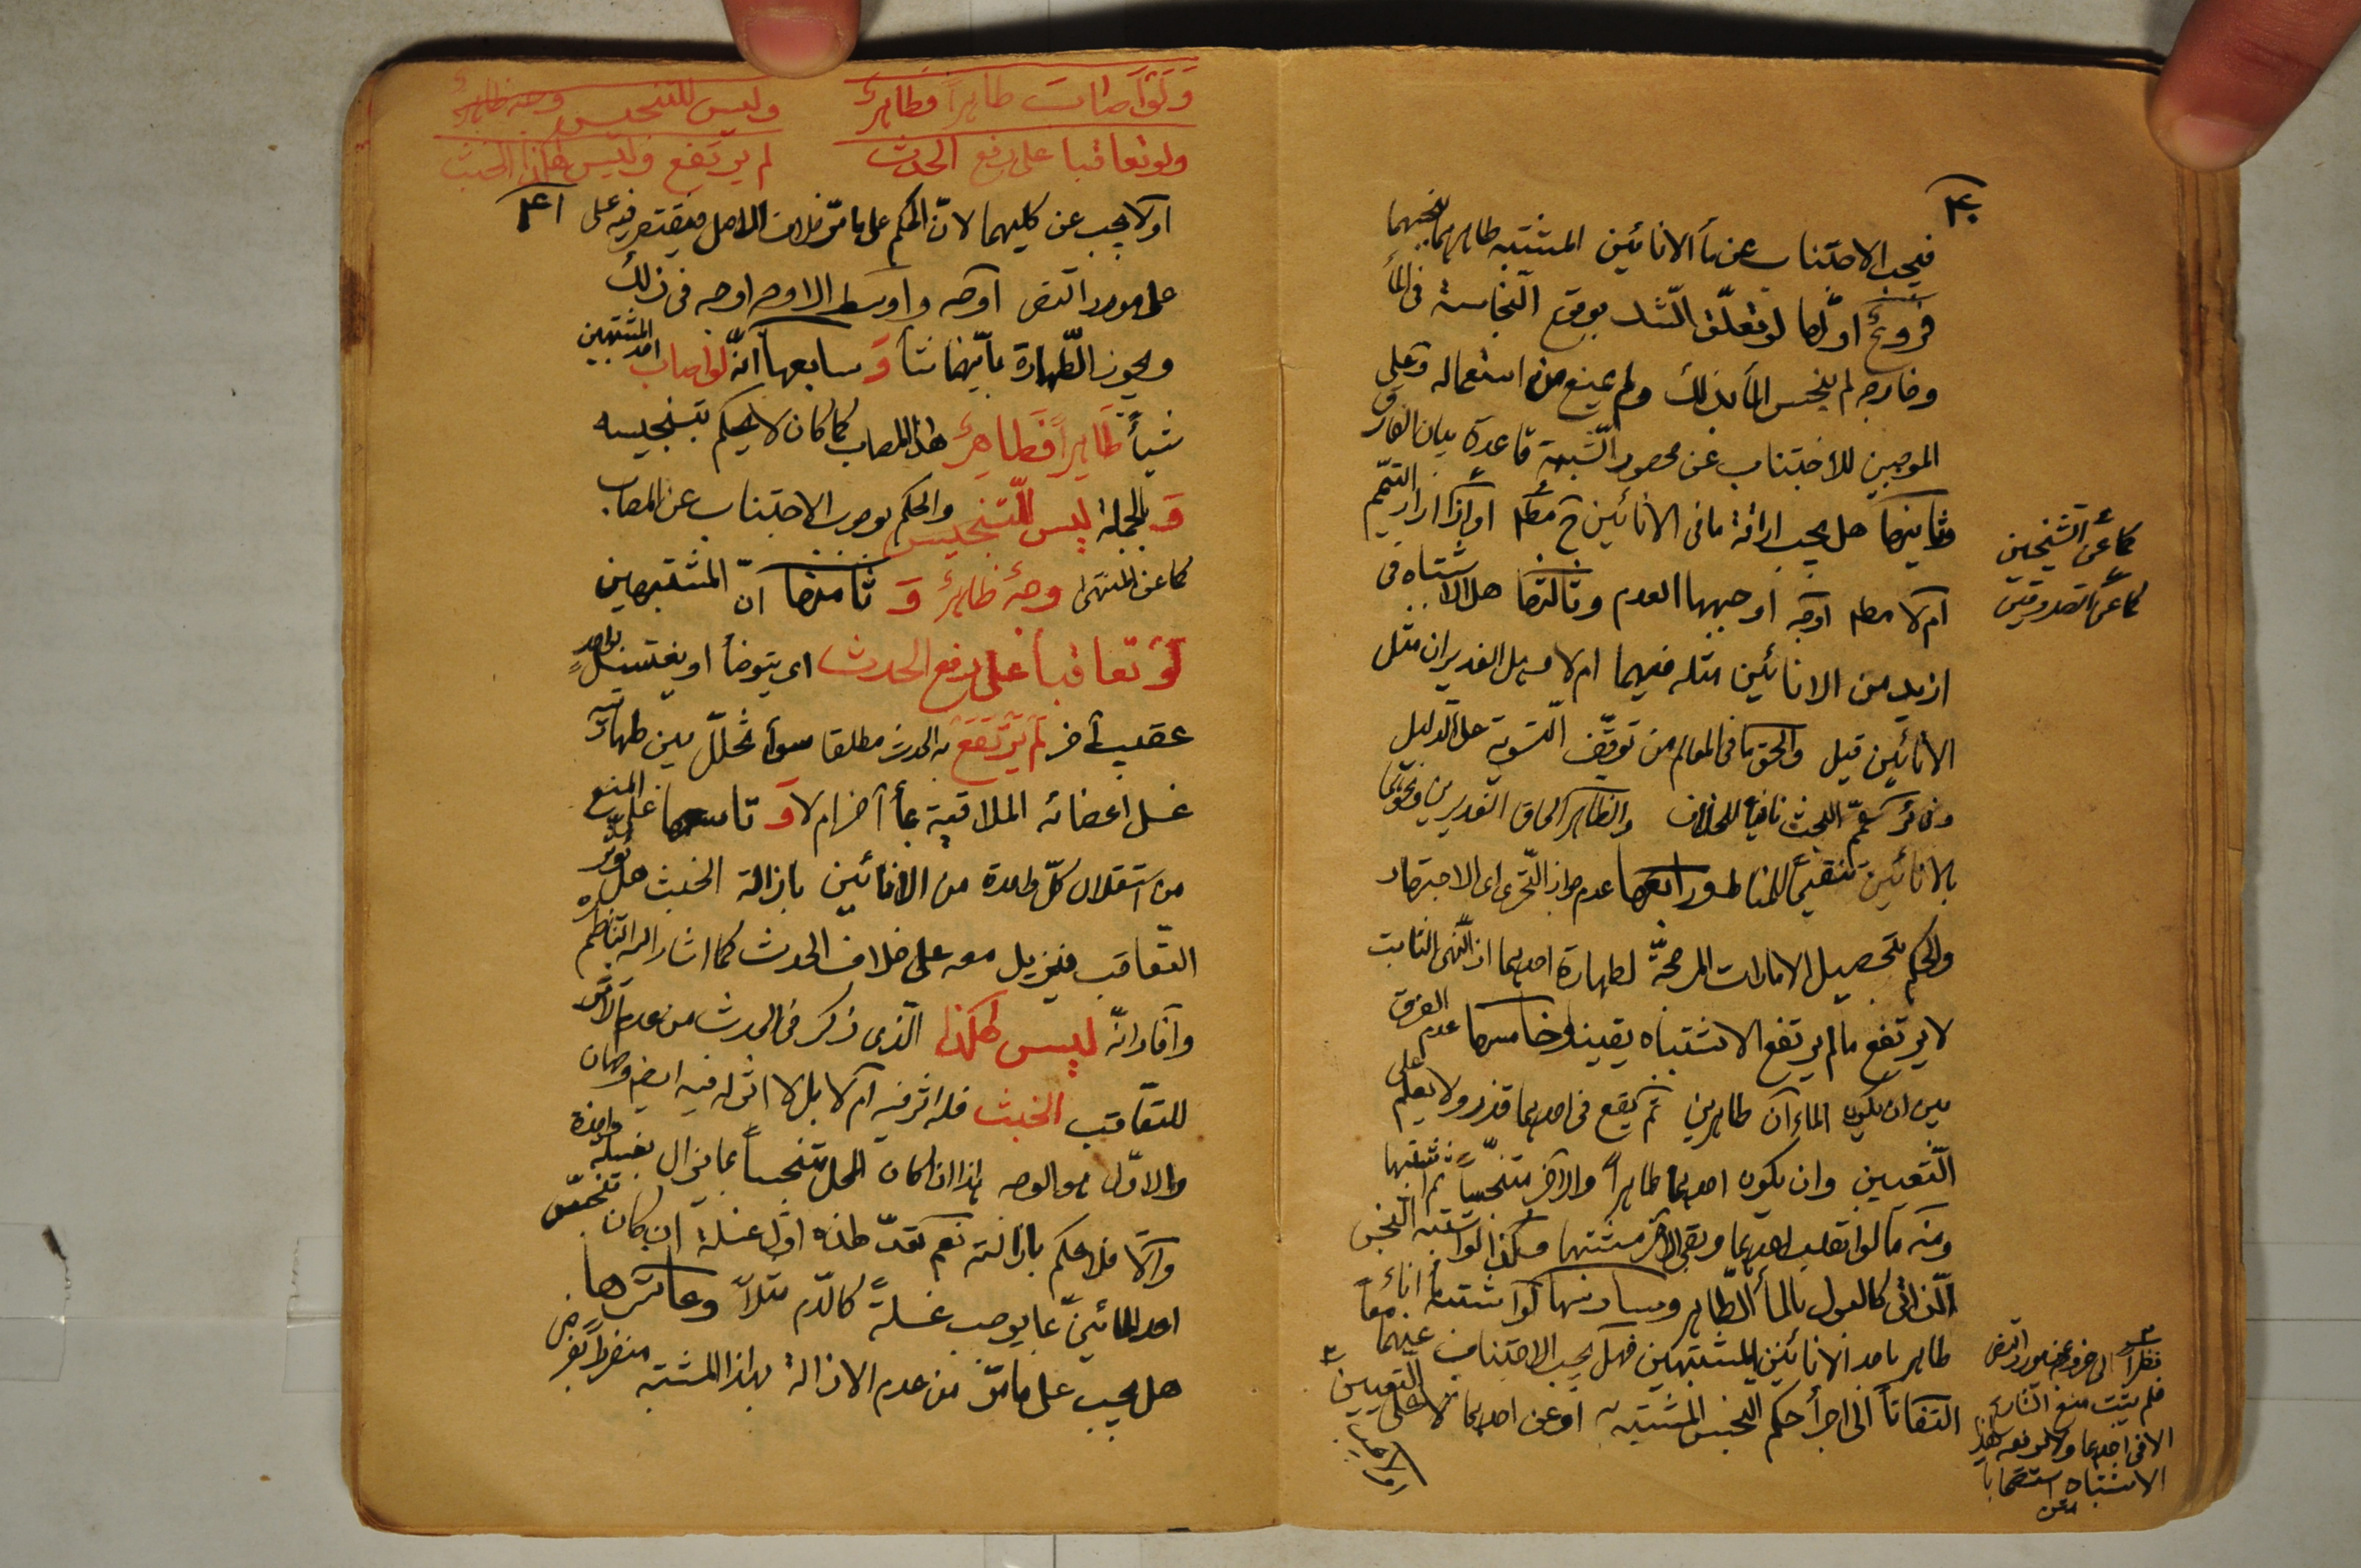 ۴۰
فيجب الاجتناب عن مأ الانائين المشتبه طاهرهما بنجسهما
فروع اولها لو تعلق الشك بوقوع النجاسة فى المأ
وخارجه لم ينجس المأ بذلك ولم يمنع من استعماله وعلى
الموجبين للاجتناب عن محصور الشبهة قاعدة بيان الفارق
وثانيها هل يجب اراقة مافى الانائين ح مط او اذا اراد التيمم
ام لا مط اوجه اوجهها العدم وثالثها هل الاشتباه فى
ازيد من الانائين مثله فيهما ام لا وهل الغديران مثل
الانائين قيل والحق ما فى المعالم من توقف التسوية على الدليل
عمم البحث نافيا للخلاف والظاهر الحاق الغديرين ونحوهما
بالانائين تنقيحا للمناط ورابعها عدم جواز التحرى اى الاجتهاد
والحكم بتحصيل الامارات المرجحة لطهارة احدهما اذ النهى الثابت
لا يرتفع مالم يرتفع الاشتباه يقينا وخامسها عدم الفرق
بين ان يكون الماءان طاهرين ثم يقع فى احدهما قذر ولا يعلم على
التعيين وان يكون احدهما طاهراً والآخر متنجساً ثم اشتبها
ومنه مالو انقلب احدهما وبقى الآخر مشتبها وكذا لو اشتبه النجس
الذاتى كالبول بالمأ الطاهر وسادسها لو اشتبه اناء
طاهر باحد الانائين المشتبهين فهل يجب الاجتناب عنهما معاً
التفاتاً الى اجرأ حكم النجس المشتبه او عن احدهما لا على التعيين
كما عن الشيخين
كما عن الصدوقين
نظراً الى
فلم يثبت منع الثالث
الا فى احدهما
الاشتباه استصحابا
ولو اصابت طاهراً فطاهر
وليس للتنجيس وجه ظاهر
ولو تعاقبا على رفع الحدث
لم يرتفع وليس هكذا الخبث
۴۱
او لا يجب عن كليهما لان الحكم على مامر خلاف الاصل فيقتصر فيه على
على مورد النص اوجه واوسط الاوجه اوجه فى ذلك
ويجوز الطهارة بأيهما شأ وَ سابعها انّه لو اصاب احد المشتبهين
شيأً طاهراً فطاهرٌ هذا المصاب كما كان لا يحكم بتنجيسه
وَ بالجملة ليس للتنجيس والحكم بوجوب الاجتناب عن المصاب
كما عن المنتهى وجهٌ ظاهرٌ وَ ثامنها انّ المشتبهين
لو تعاقبا على رفع الحدث اى يتوضأ او يغتسل بواحد
عقيب آخر لم يرتفع به الحدث مطلقا سوأ تخلّل بين طهارتيه
غسل اعضائه الملاقية بمأ آخر ام لا وَ تاسعها على المنع
من استقلال كل واحدة من الانائين بازالة الخبث هل يؤثر
التعاقب فيزيل معه على خلاف الحدث كما اشار اليه الناظم ره
وافاد انّه ليس هكذا الذى ذكر فى الحدث من عدم الاثر
للتعاقب الخبث فله اثر فيه ام لا بل لا اثر له فيه ايضا وجهان
والاول هو الوجه هذا اذا كان المحل متنجساً بما يزال بغسلة واحدة
والّا فلا حكم بازالته نعم تعدّ هذه اوّل غسلة ان كان تنجس
احد المائين بما يوجب غسلةً كالدم مثلاً وعاشرها
هل يجب على مامرّ من عدم الازالة بهذا المشتبه منفرداً